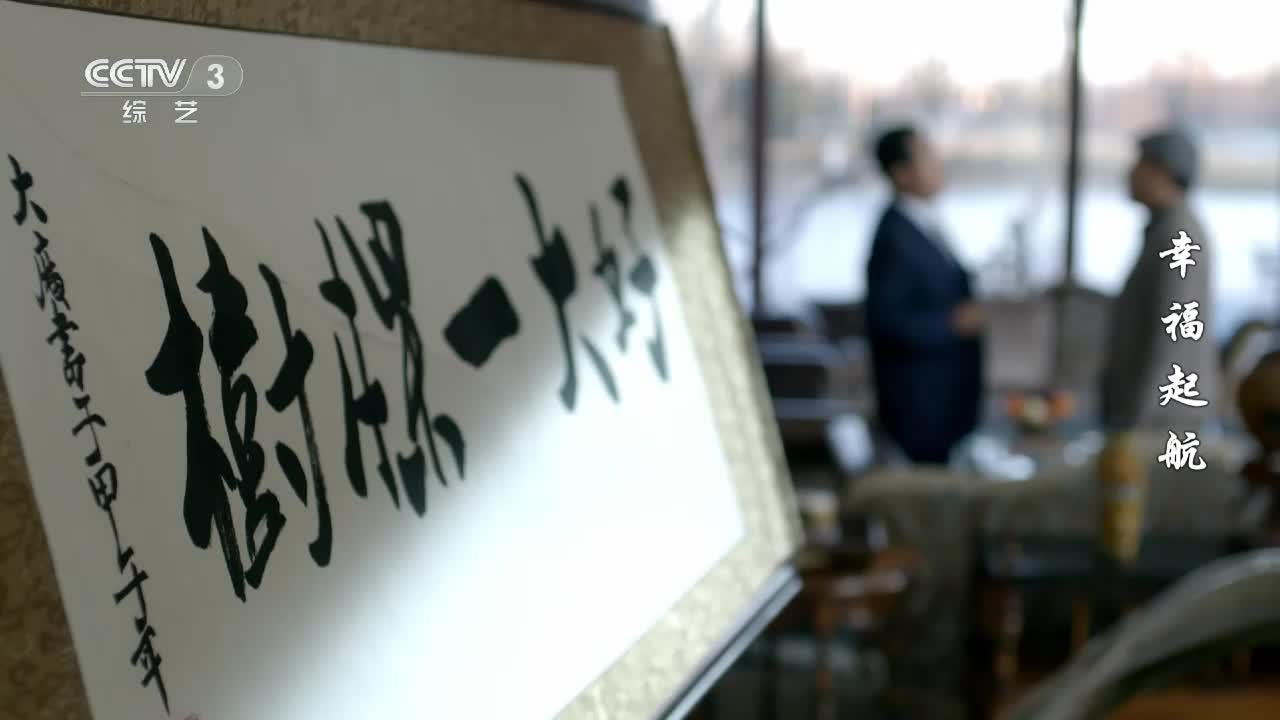 CCTV 3
综艺
好大一棵樹
大廣書于甲午年
幸福起航